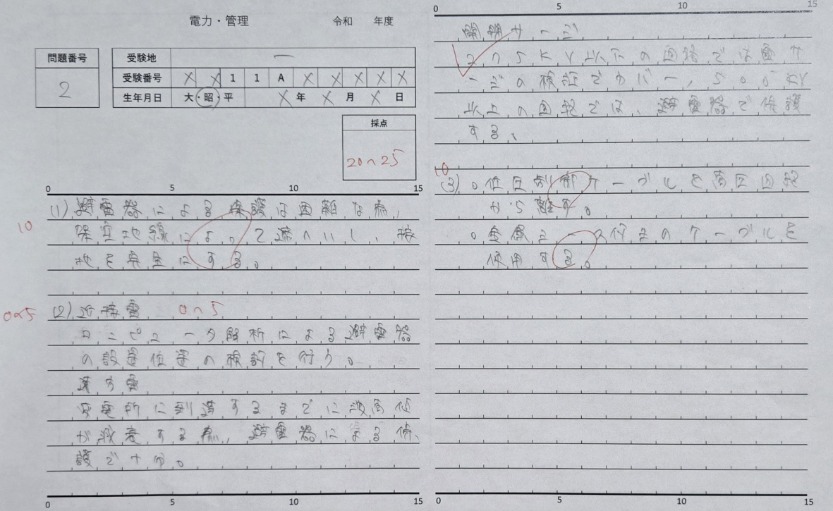 電力・管理 令和 年度
問題番号
2
受験地 ー
受験番号 X X 1 1 A X X X X X X
生年月日 大・昭・平 X 年 X 月 X 日
採点
20〜25
0 5 10 15
10
(1) 避雷器による保護は困難な為、
架空地線によって遮へいし、接
地を完全にする。
0〜5
(2) 近接雷 0〜5
コンピュータ解析による避雷器
の設置位置の検討を行う。
遠方雷
変電所に到達するまでに波高値
が減衰する為、避雷器による保
護で十分。
0 5 10 15
0 5 10 15
開閉サージ
275KV以下の回路では雷サ
ージの検証でカバー、500KV
以上の回路では、避雷器で保護
する。
10
(3) 。低圧制御ケーブルを高圧回路
から離す。
。金属シース付きのケーブルを
使用する。
0 5 10 15